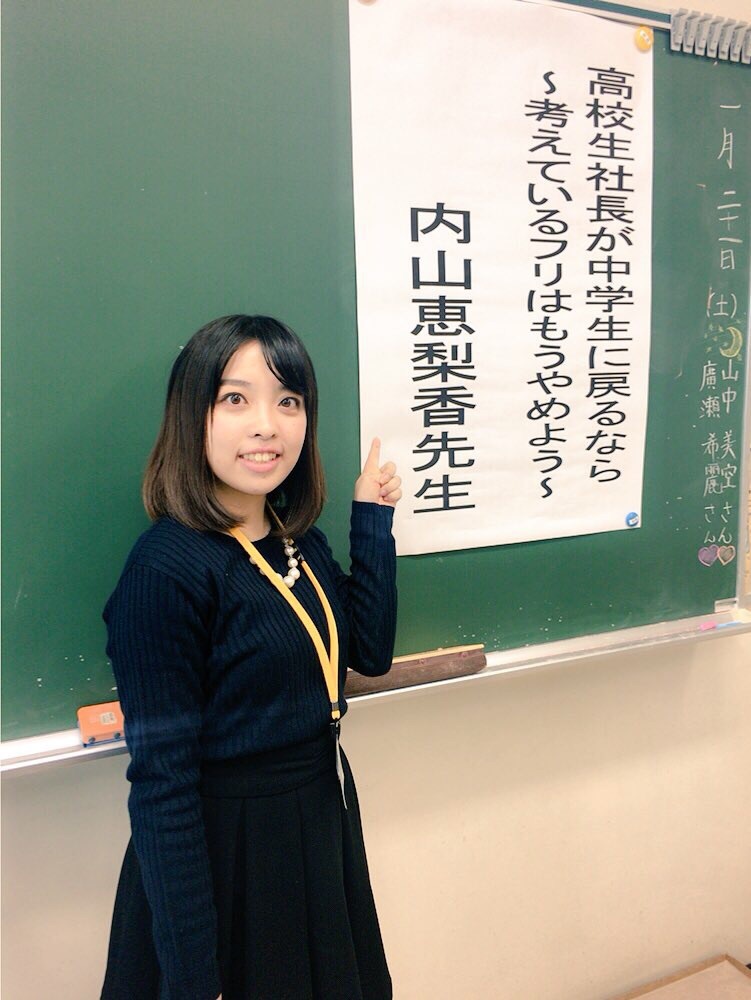 一月二十一日(土)
山中美空さん
廣瀬希麗さん
高校生社長が中学生に戻るなら
～考えているフリはもうやめよう～
内山恵梨香先生